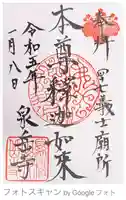 奉拝
四七義士廟所
本尊釈迦如来
令和五年
一月八日
泉岳寺
フォトスキャン by Google フォト